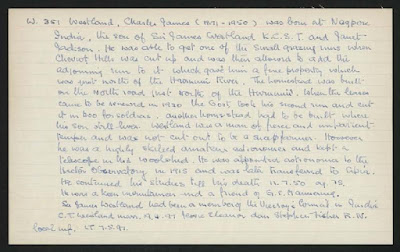 W. 351 Westland, Charles James (1871 - 1950) was born at Nagpore
India, the son of Sir James Westland K.C.S.I and Janet
Jackson. He was able to get one of the small grazing runs when
Cheviot Hills was cut up and was then allowed to add the
adjoining run to it which gave him a fine property which
was just north of the Hurunui River. The homestead was built
on the north road just north of the Hurunui. When the leases
came to be renewed in 1920 the Govt took his second run and cut
it in two for soldiers, another homestead had to be built where
his son still lives. Westland was a man of fierce and impatient
temper and was not cut out to be a sheepfarmer. However
he was a highly skilled amateur astronomer and kept a
telescope in his woolshed. He was appointed astronomer to the
Hector Observatory in 1915 and was later transferred to Apia.
He continued his studies till his death 11.7.50 ag 78.
He was a keen mountaineer and a friend of G.E. Mannering.
Sir James Westland had been a member of the Viceroy's Council in India
C.J. Westland marr. 9.4.97 Jessie Eleanor dau Stephen Fisher R.N.
LT 7.5.97.